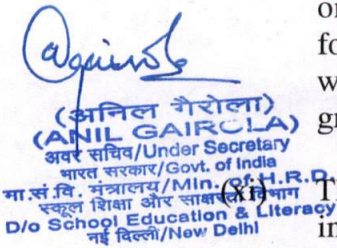 (अनिल गैरोला)
(ANIL GAIROLA)
अवर सचिव/Under Secretary
भारत सरकार/Govt. of India
मा.सं.वि. मंत्रालय/Min. of H.R.D.
स्कूल शिक्षा और साक्षरता विभाग
D/o School Education & Literacy
नई दिल्ली/New Delhi
(xi)